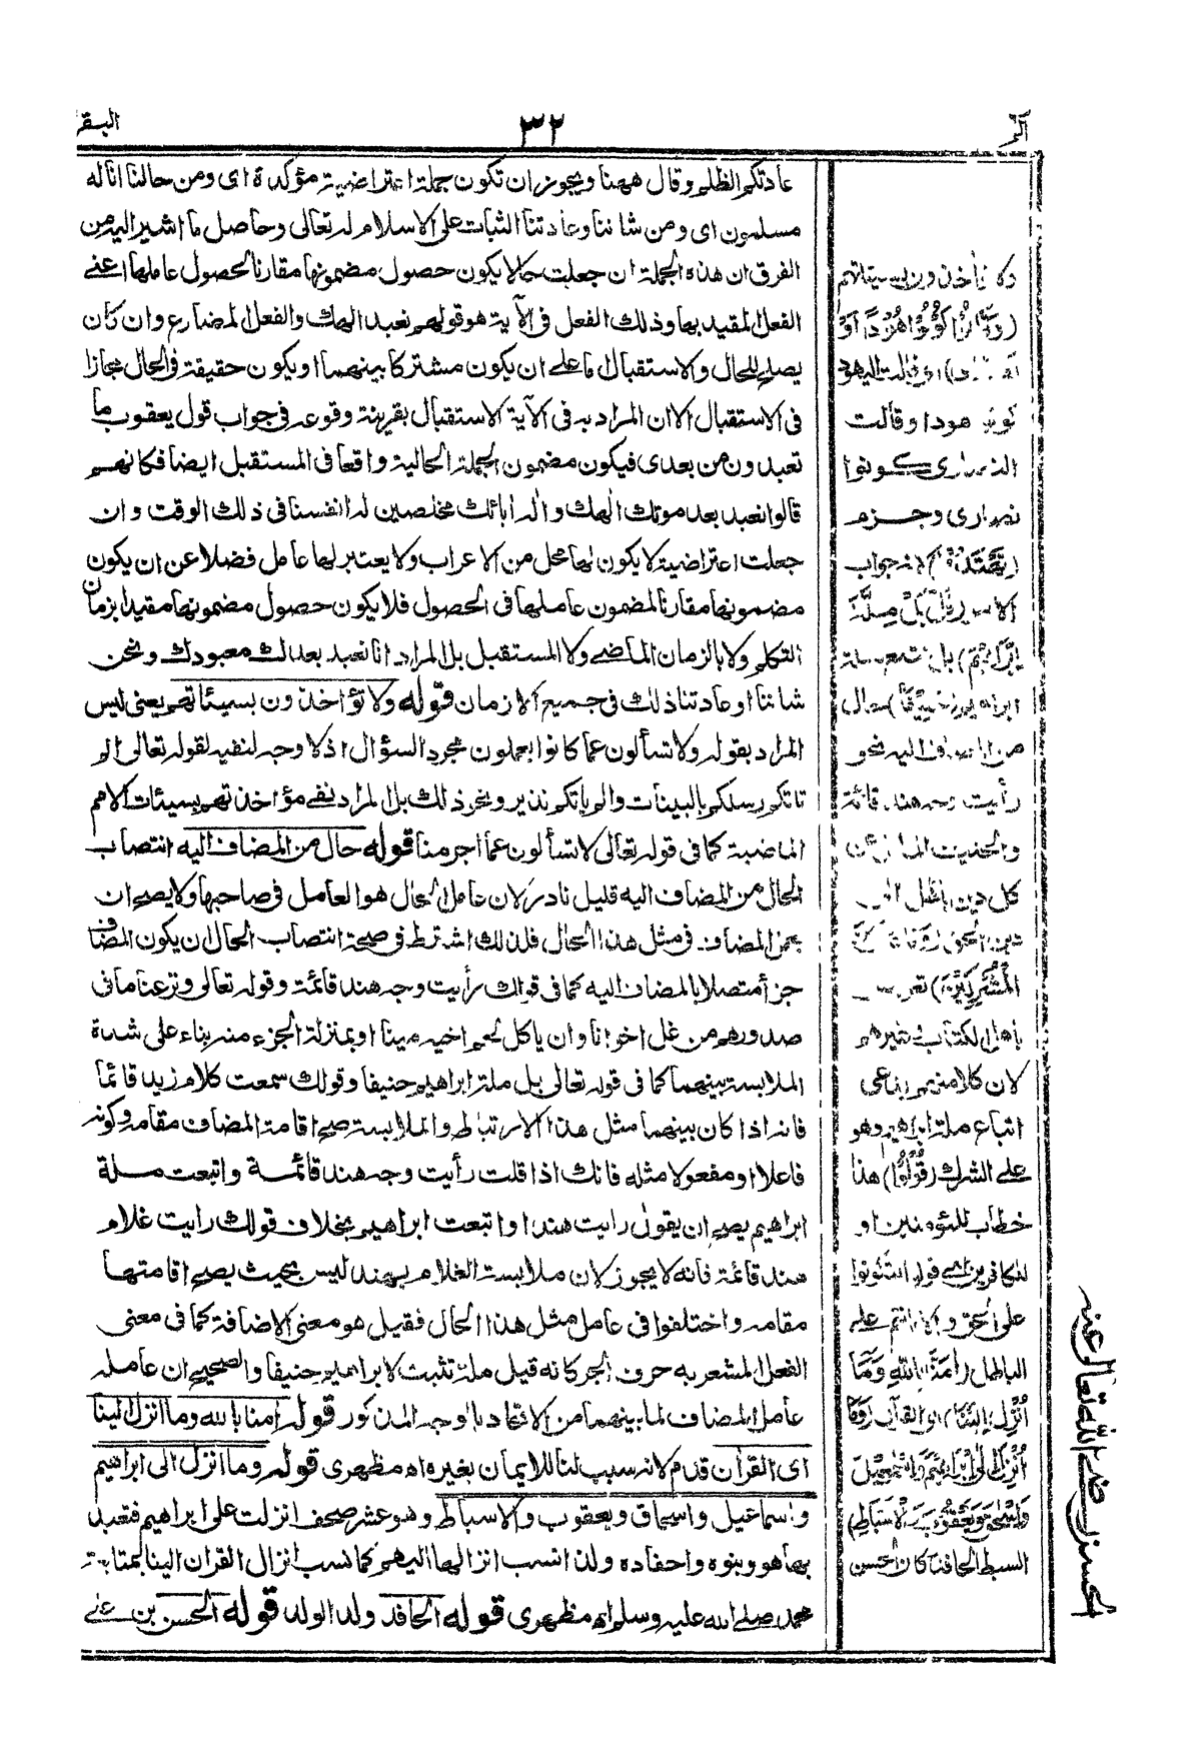 الم
٣٢
البقر
عادتكم الظلم وقال ههنا ويجوز ان تكون جملة اعتراضية مؤكدة اى ومن حالنا انا له
مسلمون اى ومن شاننا وعادتنا الثبات على الاسلام له تعالى وحاصل ما اشير اليه من
الفرق ان هذه الجملة ان جعلت حالا يكون حصول مضمونها مقارنا لحصول عاملها اعنے
الفعل المقيد بها وذلك الفعل فى الآية هو قولهم نعبد الهك والفعل المضارع وان كان
يصلح للحال والاستقبال اما علے ان يكون مشتركا بينهما او يكون حقيقة فى الحال مجازا
فى الاستقبال الا ان المراد به فى الآية الاستقبال بقرينة وقوعه فى جواب قول يعقوب ما
تعبدون من بعدى فيكون مضمون الجملة الحالية واقعا فى المستقبل ايضا فكانهم
قالوا نعبد بعد موتك الهك واله ابائك مخلصين له انفسنا فى ذلك الوقت وان
جعلت اعتراضية لا يكون لها محل من الاعراب ولا يعتبر لها عامل فضلا عن ان يكون
مضمونها مقارنا لمضمون عاملها فى الحصول فلا يكون حصول مضمونها مقيدا بزمان
التكلم ولا بالزمان الماضے ولا المستقبل بل المراد انا نعبد بعدك معبودك ونحن
شاننا او عادتنا ذلك فى جميع الازمان قوله ولا تؤاخذون بسيئاتهم يعنى ليس
المراد بقوله ولا تسألون عما كانوا يعملون مجرد السؤال اذ لا وجه لنفيه لقوله تعالى الم
تاتكم رسلكم بالبينات والم ياتكم نذير ونحو ذلك بل المراد نفے مؤاخذتهم بسيئات الامم
الماضية كما فى قوله تعالى لا تسألون عما اجرمنا قوله حال من المضاف اليه انتصاب
الحال من المضاف اليه قليل نادر لان عامل الحال هو العامل فى صاحبها ولا يصح ان
يعمل المضاف فى مثل هذا الحال فلذلك اشترط فى صحة انتصاب الحال ان يكون المضاف
جزأ متصلا بالمضاف اليه كما فى قولك رأيت وجه هند قائمة وقوله تعالى ونزعنا ما فى
صدورهم من غل اخوانا وان ياكل لحم اخيه ميتا او بمنزلة الجزء منه بناء على شدة
الملابسة بينهما كما فى قوله تعالى بل ملة ابراهيم حنيفا وقولك سمعت كلام زيد قائما
فانه اذا كان بينهما مثل هذا الارتباط والملابسة صح اقامة المضاف مقامه وكونه
فاعلا او مفعولا مثله فانك اذا قلت رأيت وجه هند قائمة واتبعت ملة
ابراهيم يصح ان يقول رايت هندا واتبعت ابراهيم بخلاف قولك رايت غلام
هند قائمة فانه لا يجوز لان ملابسة الغلام بهند ليس بحيث يصح اقامتها
مقامه واختلفوا فى عامل مثل هذا الحال فقيل هو معنى الاضافة كما فى معنى
الفعل المشعر به حرف الجر كانه قيل ملة تثبت لابراهيم حنيفا والصحيح ان عامله
عامل المضاف لما بينهما من الاتحاد بالوجه المذكور قوله امنا بالله وما انزل الينا
اى القران قدم لانه سبب لنا للايمان بغيره اه مظهرى قوله وما انزل الى ابراهيم
واسماعيل واسحاق ويعقوب والاسباط وهو عشر صحف انزلت على ابراهيم فتعبد
بها هو وبنوه واحفاده ولذا نسب انزالها اليهم كما نسب انزال القران الينا لمتابعة
محمد صلے الله عليه وسلم اه مظهرى قوله الحافد ولد الولد قوله الحسن بن علے
تؤاخذون بسيئاتهم
(وقالوا كونوا هودا او
نصارى) اى قالت اليهود
كونوا هودا وقالت
النصارى كونوا
نصارى وجزم
(تهتدوا) لانه جواب
الامر (قل بل ملة
ابراهيم) بل نتبع ملة
ابراهيم (حنيفا) حال
من المضاف اليه نحو
رأيت وجه هند قائمة
والحنيف المائل عن
كل دين باطل الى
دين الحق (وما كان من
المشركين) تعريض
باهل الكتاب وغيرهم
لان كلا منهم يدعى
اتباع ملة ابراهيم وهو
علے الشرك (قولوا) هذا
خطاب للمؤمنين او
للكافرين اے قولوا لتكونوا
على الحق والا فانتم علے
الباطل (امنا بالله وما
انزل الينا) اى القرآن (وما
انزل الى ابراهيم واسمعيل
واسحق ويعقوب والاسباط)
السبط الحافد كان الحسن
الحسن رضے الله تعالى عنه